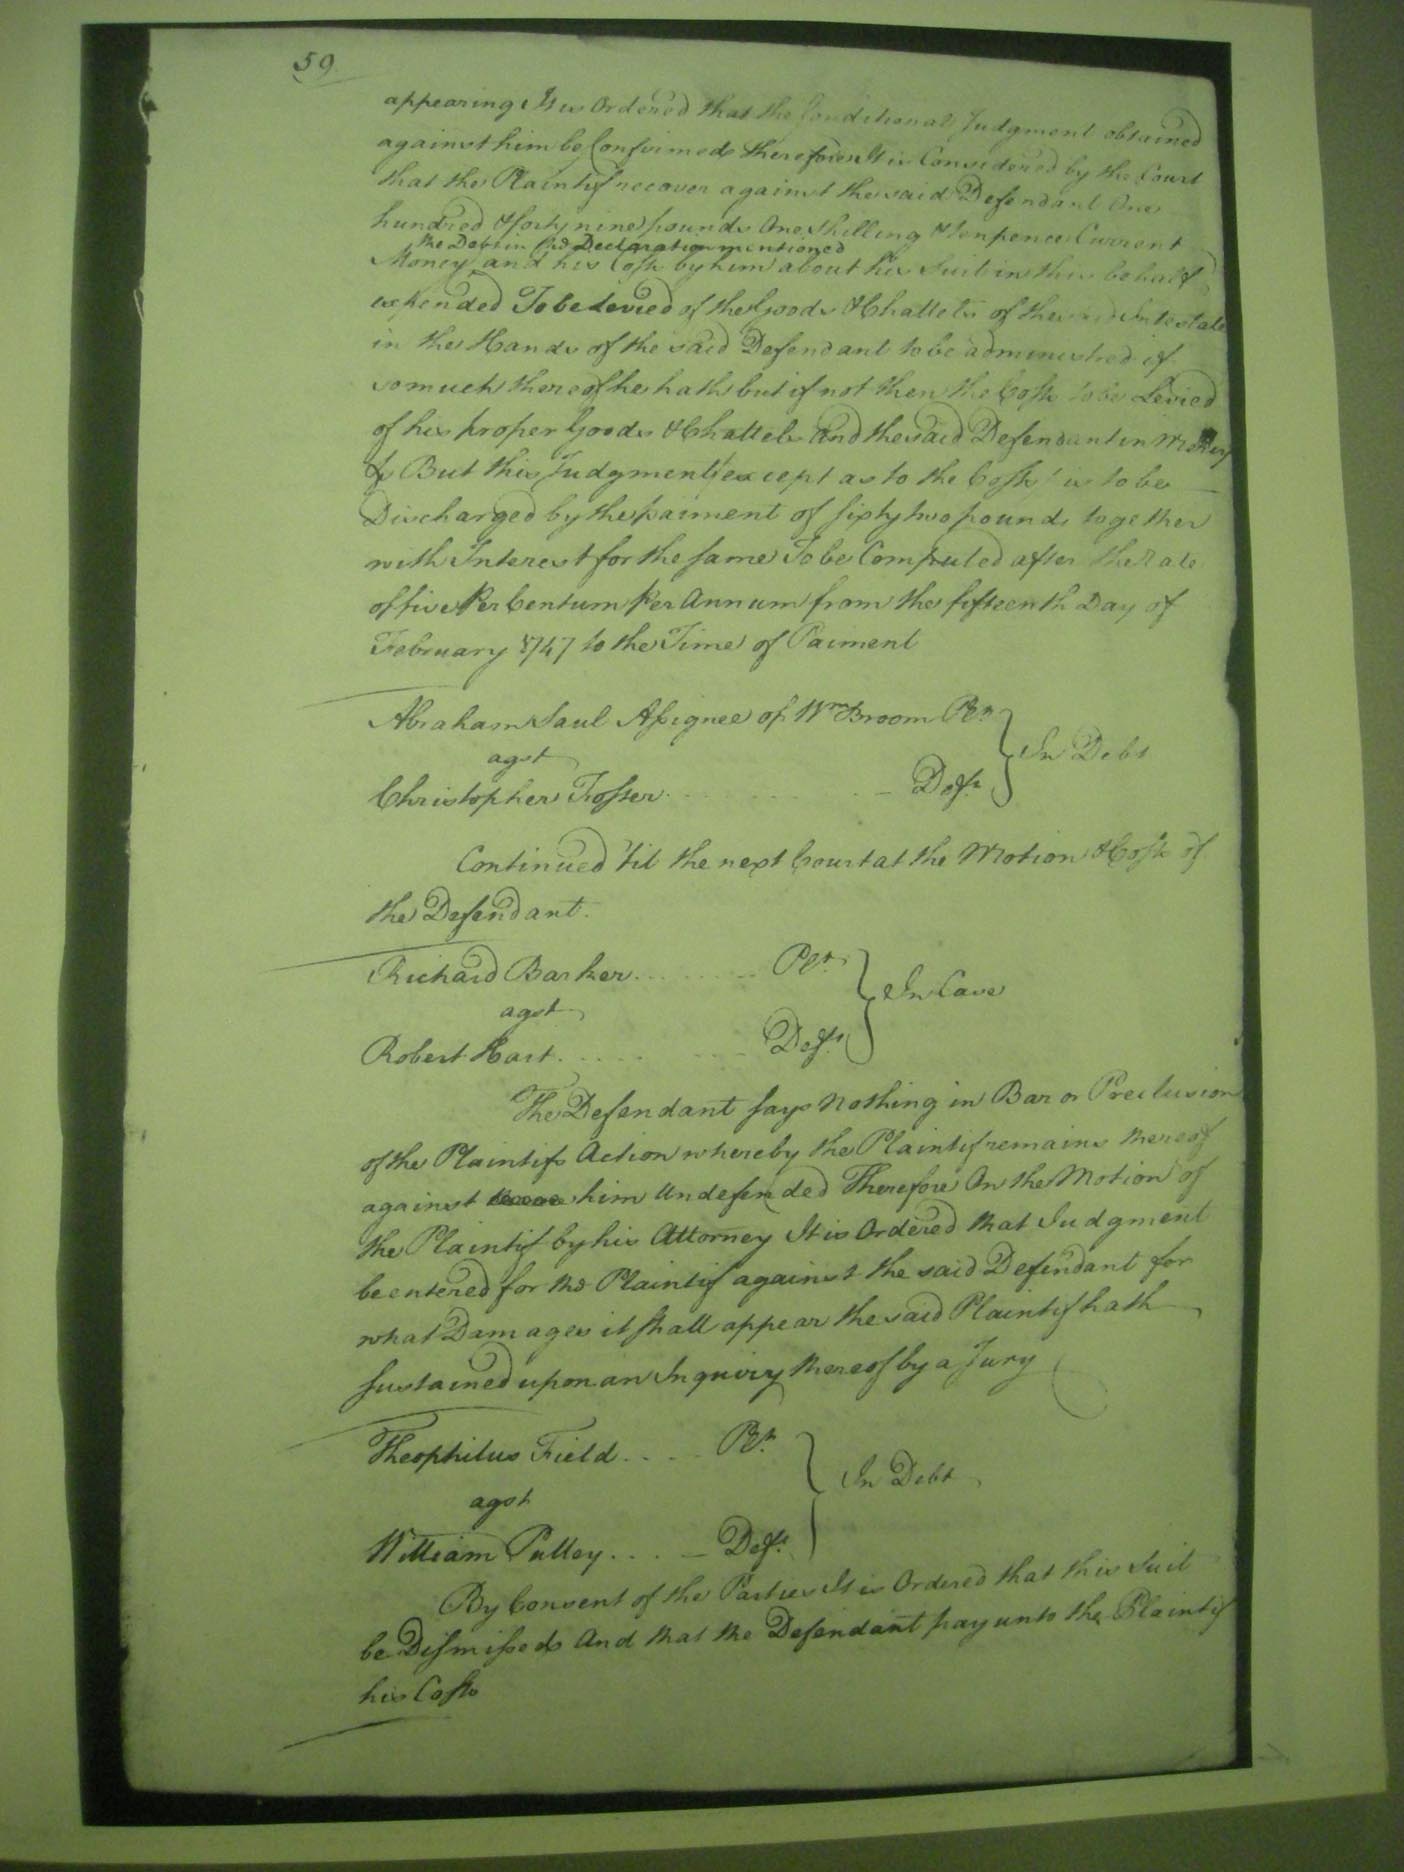 59
appearing It is Ordered that the Conditional Judgment obtained
against him be Confirmed therefore It is Considered by the Court
that the Plaintif recover against the said Defendant One
hundred & forty nine pounds One Shilling & tenpence Current
the Debt in the Declaration mentioned
Money and his Costs by him about his Suit in this behalf
expended To be Levied of the Goods & Chattels of the said Intestate
in the Hands of the said Defendant to be administred if
so much thereof he hath but if not then the Costs to be Levied
of his proper Goods & Chattels And the said Defendant in Mercy
&c But this Judgment (except as to the Costs) is to be
Discharged by the paiment of sixty two pounds together
with Interest for the same To be Computed after the Rate
of five Per Centum Per Annum from the fifteenth Day of
February 1747 to the Time of Paiment
Abraham Saul Assignee of Wm Broom Plt
agst
In Debt
Christopher Tosser Deft
Continued 'til the next Court at the Motion & Costs of
the Defendant.
Richard Barker Plt
agst
In Case
Robert Hart Deft
The Defendant says Nothing in Bar or Preclusion
of the Plaintifs Action whereby the Plaintif remains thereof
against him Undefended Therefore On the Motion of
the Plaintif by his Attorney It is Ordered that Judgment
be entered for the Plaintif against the said Defendant for
what Damages it shall appear the said Plaintif hath
sustained upon an Inquiry thereof by a Jury
Theophilus Field Plt
agst
In Debt
William Pulley Deft
By Consent of the Parties It is Ordered that this Suit
be Dismissed And that the Defendant pay unto the Plaintif
his Costs